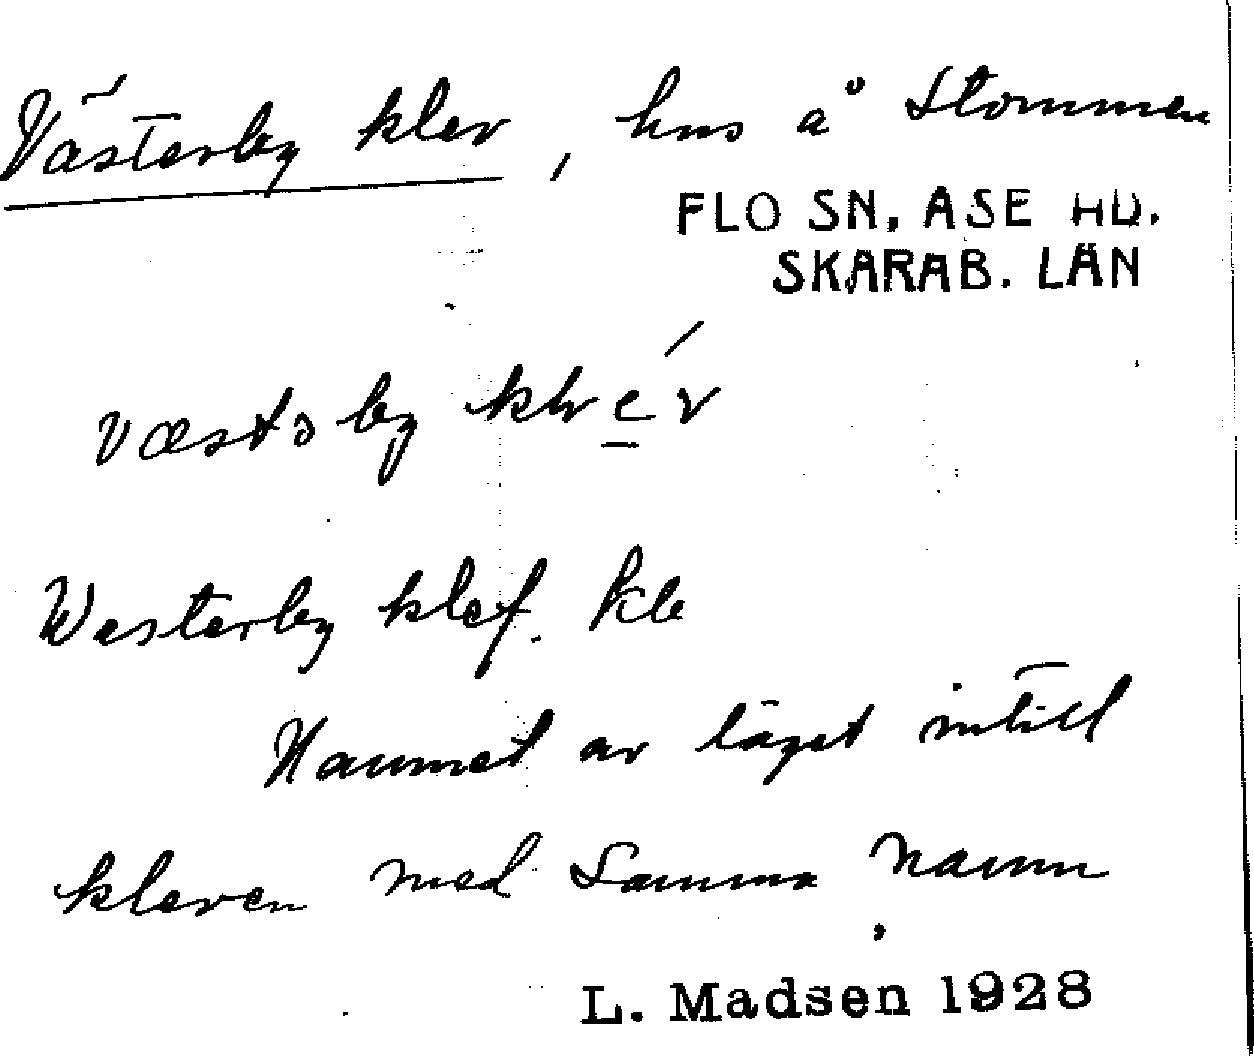 Västerby klev, hus å Stommen
FLO SN, ÅSE HD.
SKARAB. LÄN
væstəby
Westerby klef. kb
Namnet av läget intill
kleven med samma namn
L. Madsen 1928